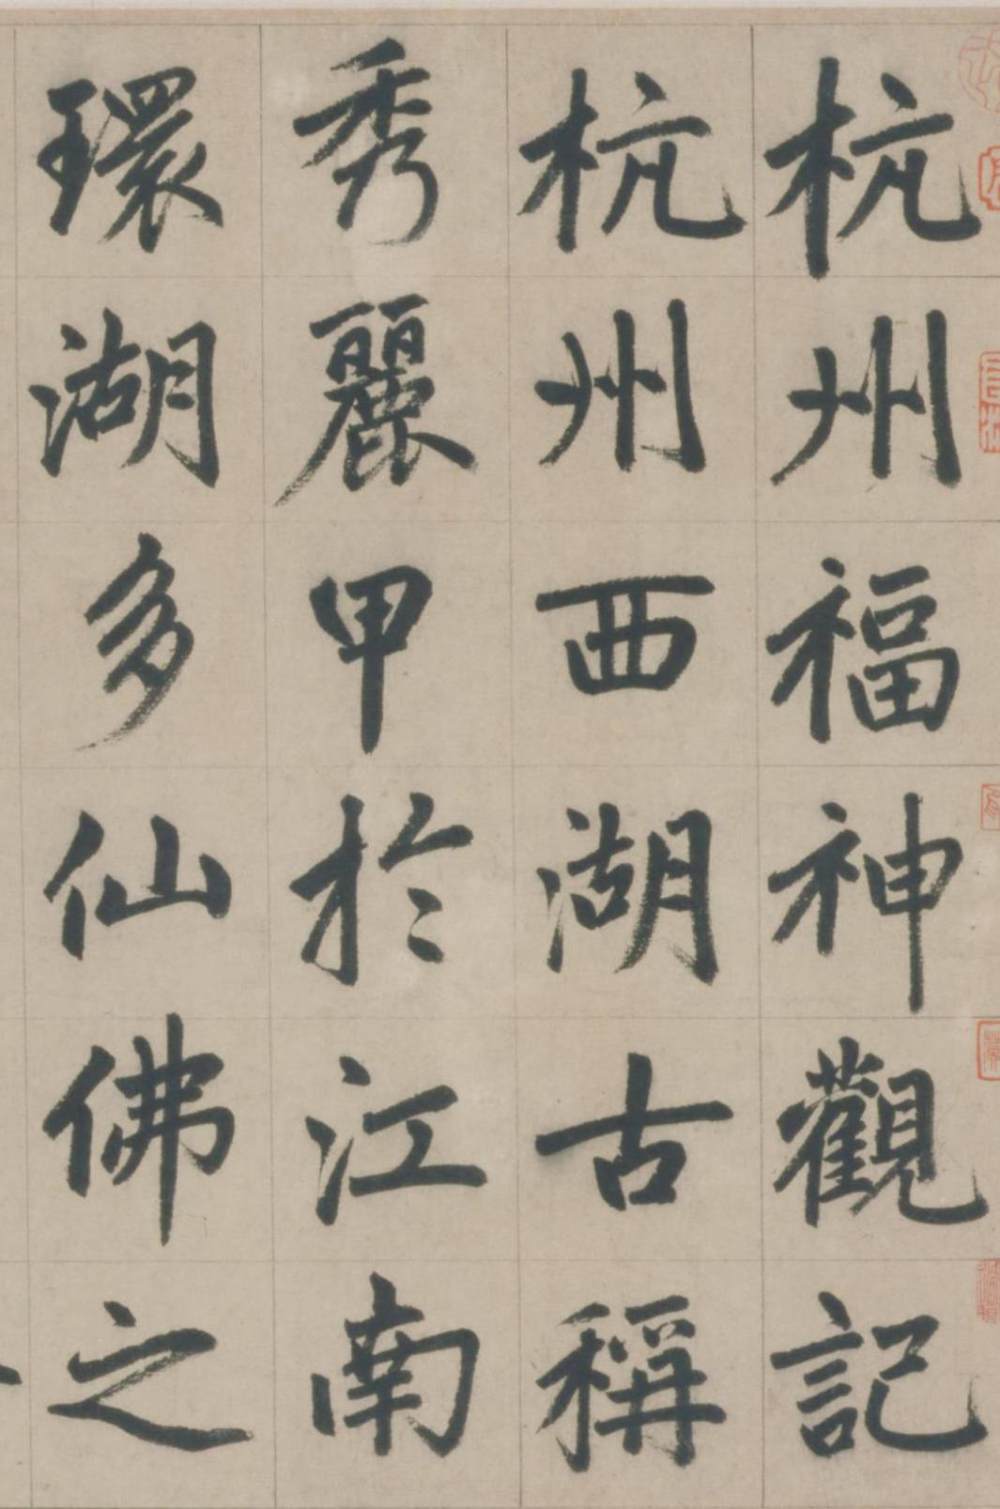 杭州福神觀記
杭州西湖古稱
秀麗甲於江南
環湖多仙佛之